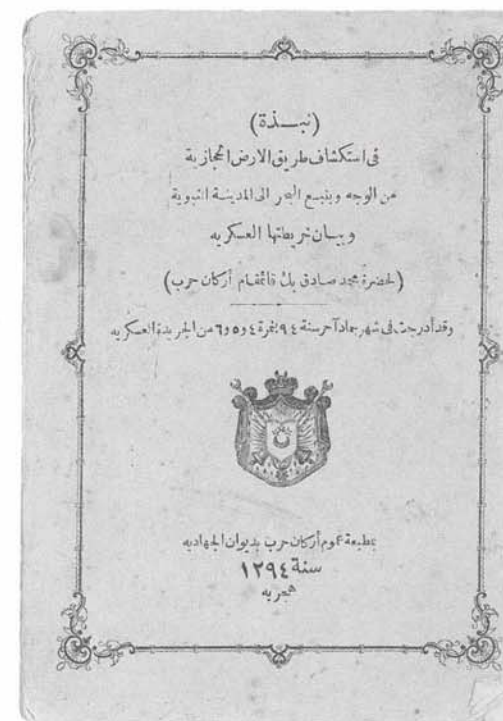 (نبـــذة)
فى استكشاف طريق الارض الحجازية
من الوجه وينبع البحر الى المدينة النبوية
وبيــان خريطتها العسكريه
(لحضرة محمد صادق بك قائمقام أركان حرب)
وقد أدرجت فى شهر جمادآخر سنة ٩٤ بنمرة ٤ و٥ و٦ من الجريدة العسكريه
بمطبعة عموم أركان حرب بديوان الجهاديه
سنة ١٢٩٤
هجريه